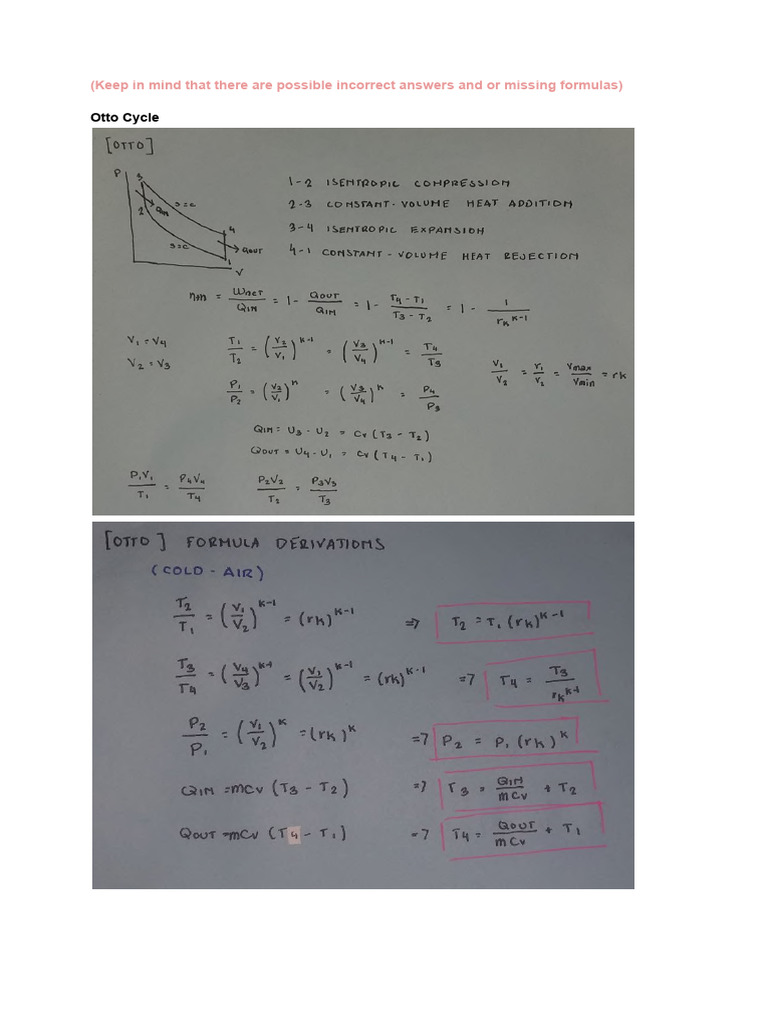 (Keep in mind that there are possible incorrect answers and or missing formulas)
Otto Cycle
[OTTO]
P 3 S=C QIN 2 4 S=C QOUT 1 V
1-2 ISENTROPIC COMPRESSION
2-3 CONSTANT-VOLUME HEAT ADDITION
3-4 ISENTROPIC EXPANSION
4-1 CONSTANT-VOLUME HEAT REJECTION
ηth = WNET/QIN = 1 - QOUT/QIN = 1 - (T4-T1)/(T3-T2) = 1 - 1/rk^(k-1)
V1 = V4
V2 = V3
T1/T2 = (V2/V1)^(k-1) = (V3/V4)^(k-1) = T4/T3
P1/P2 = (V2/V1)^k = (V3/V4)^k = P4/P3
V1/V2 = v1/v2 = Vmax/Vmin = rk
QIN = U3 - U2 = Cv (T3 - T2)
QOUT = U4 - U1 = Cv (T4 - T1)
P1V1/T1 = P4V4/T4 P2V2/T2 = P3V3/T3
[OTTO] FORMULA DERIVATIONS
(COLD-AIR)
T2/T1 = (V1/V2)^(k-1) = (rk)^(k-1) => T2 = T1 (rk)^(k-1)
T3/T4 = (V4/V3)^(k-1) = (V1/V2)^(k-1) = (rk)^(k-1) => T4 = T3/rk^(k-1)
P2/P1 = (V1/V2)^k = (rk)^k => P2 = P1 (rk)^k
QIN = mCv (T3 - T2) => T3 = QIN/mCv + T2
QOUT = mCv (T4 - T1) => T4 = QOUT/mCv + T1